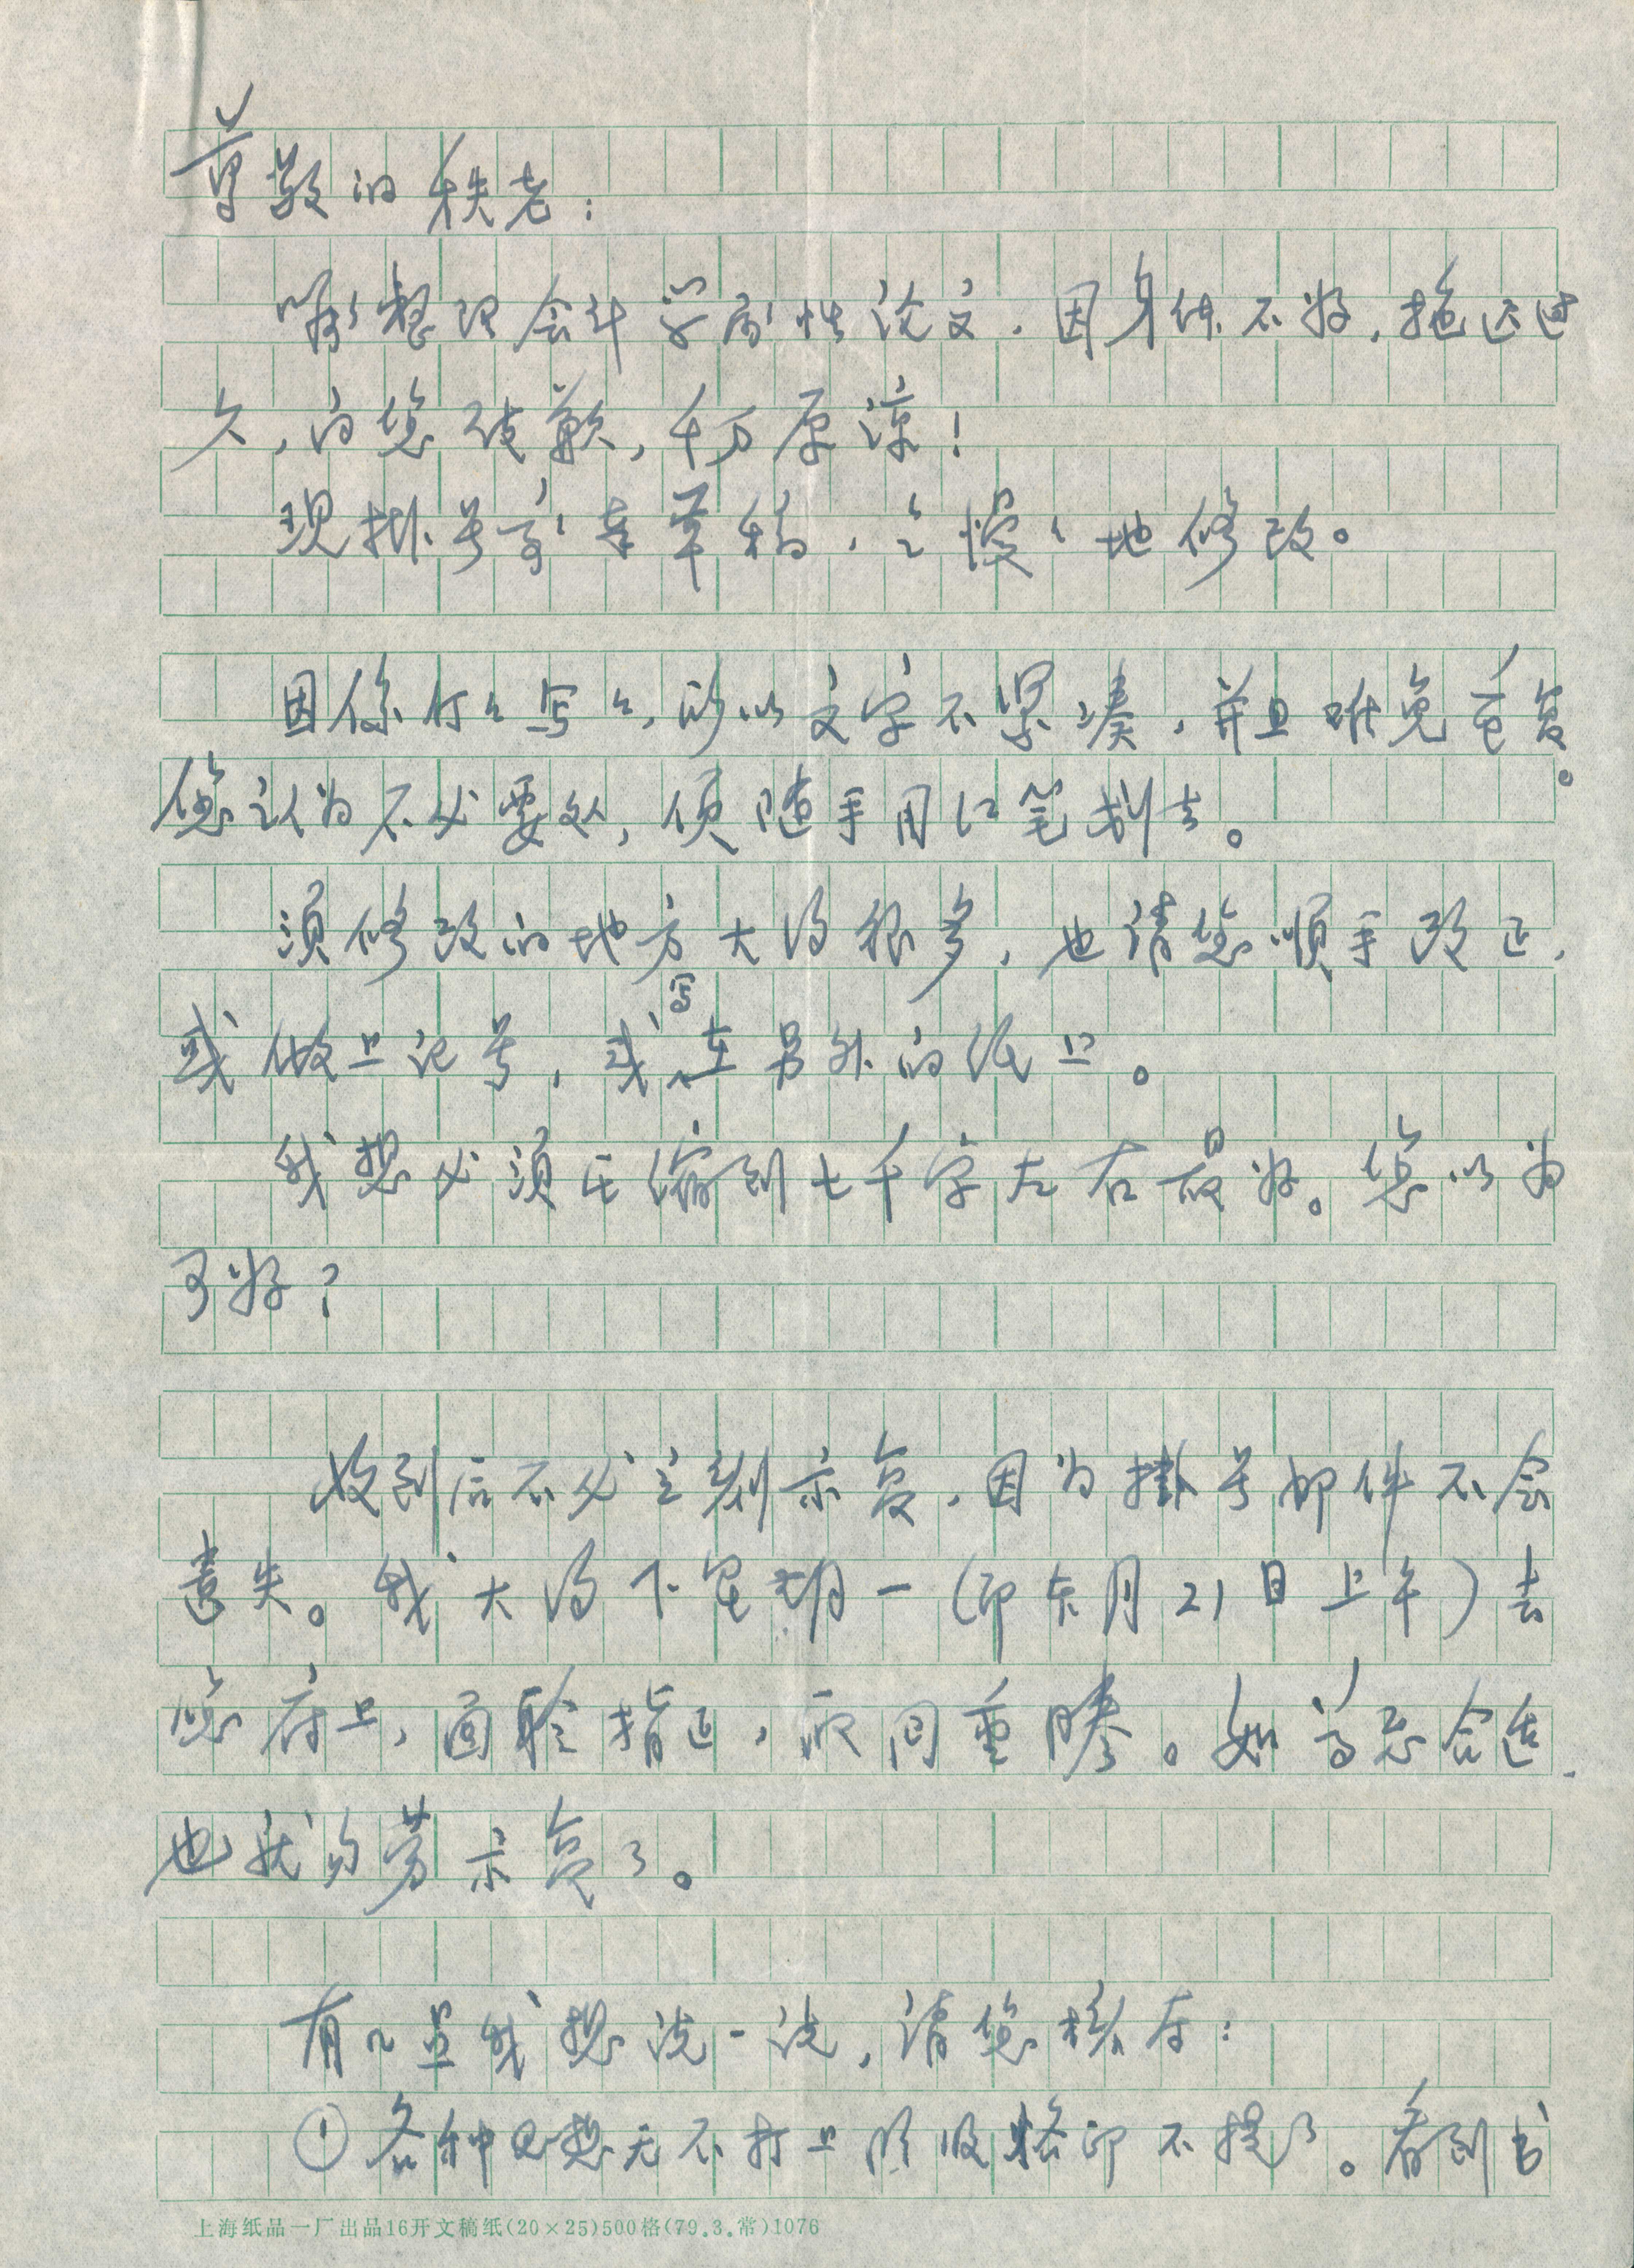 尊敬的秩老：
嘱整理会计学属性论文，因身体不好，拖延过
久，向您致歉，千万原谅！
现挂号寄奉草稿，请慢慢地修改。
因系行々写々，所以文字不紧凑，并且难免重复。
您认为不必要处，便随手用红笔划去。
须修改的地方大约很多，也请您顺手改正，
或做上记号，或写在另外的纸上。
我想必须压缩到七千字左右最好。您以为
可好？
收到后不必立刻示复，因为掛号邮件不会
遗失。我大约下星期一（即本月21日上午）去
您府上，面聆指正，取回重謄。如尊意合适，
也就勿劳示复了。
有几点我想说一说，请您核夺：
①各种思想无不打上阶级烙印不提了。看到书
上海纸品一厂出品16开文稿纸(20×25)500格(79.3.常)1076